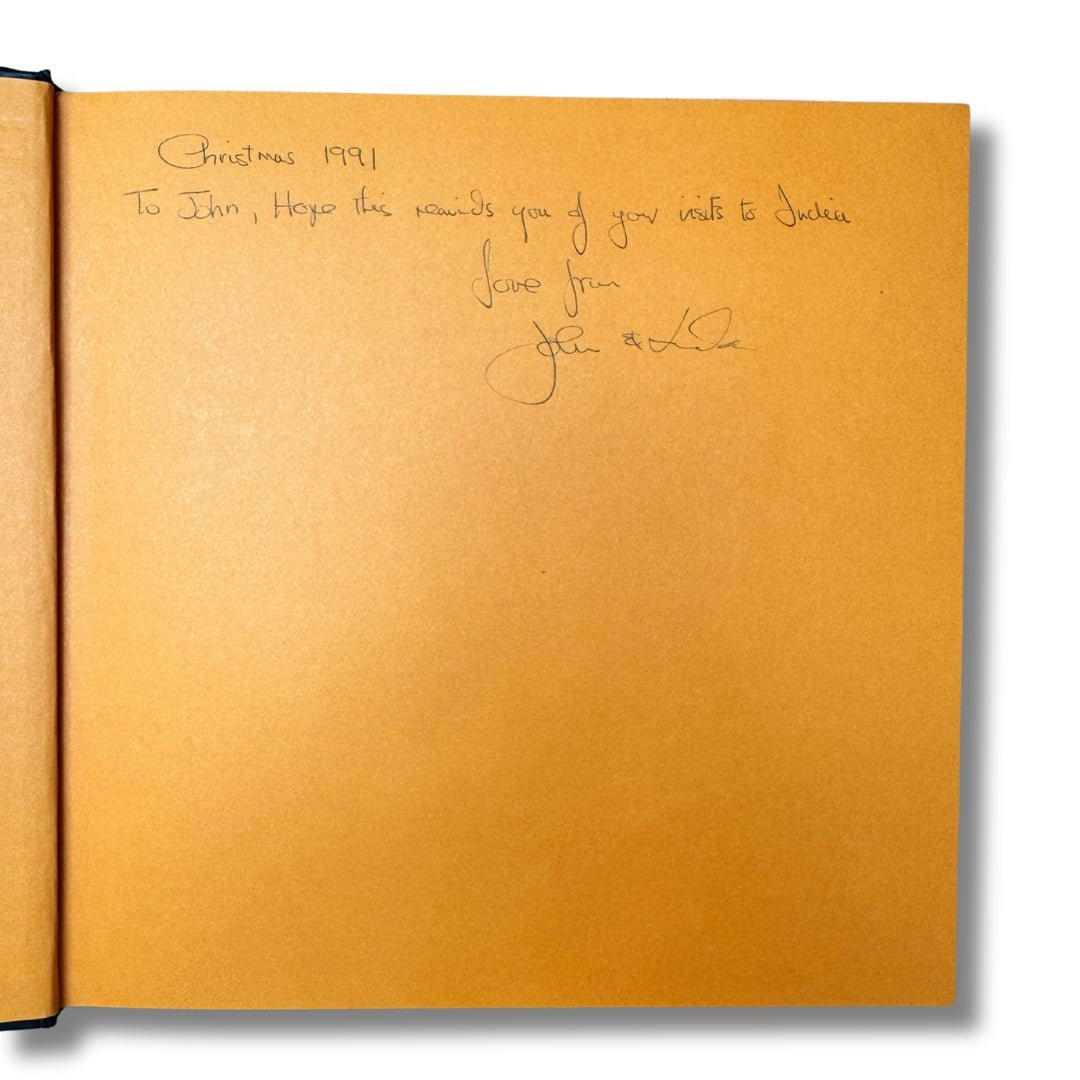 Christmas 1991
To John, Hope this reminds you of your visits to India
love from
John &